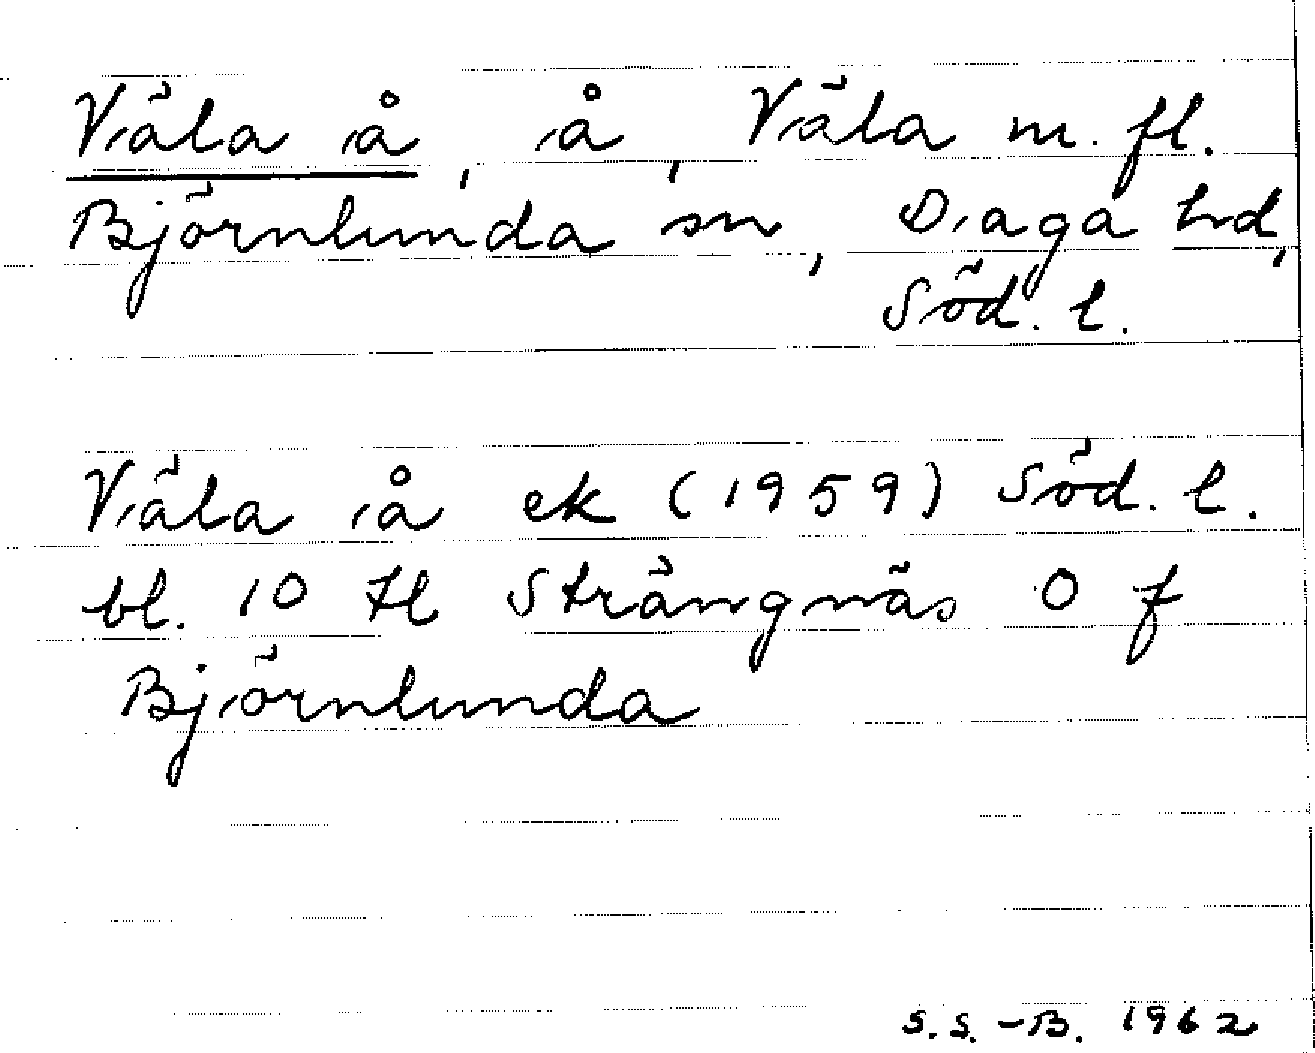 Väla å, å, Väla m. fl.
Björnlunda sn, Daga hd,
Söd. l.
Väla å ek (1959) Söd. l.
bl. 10 tl Strängnäs O f
Björnlunda
S.S.-B. 1962